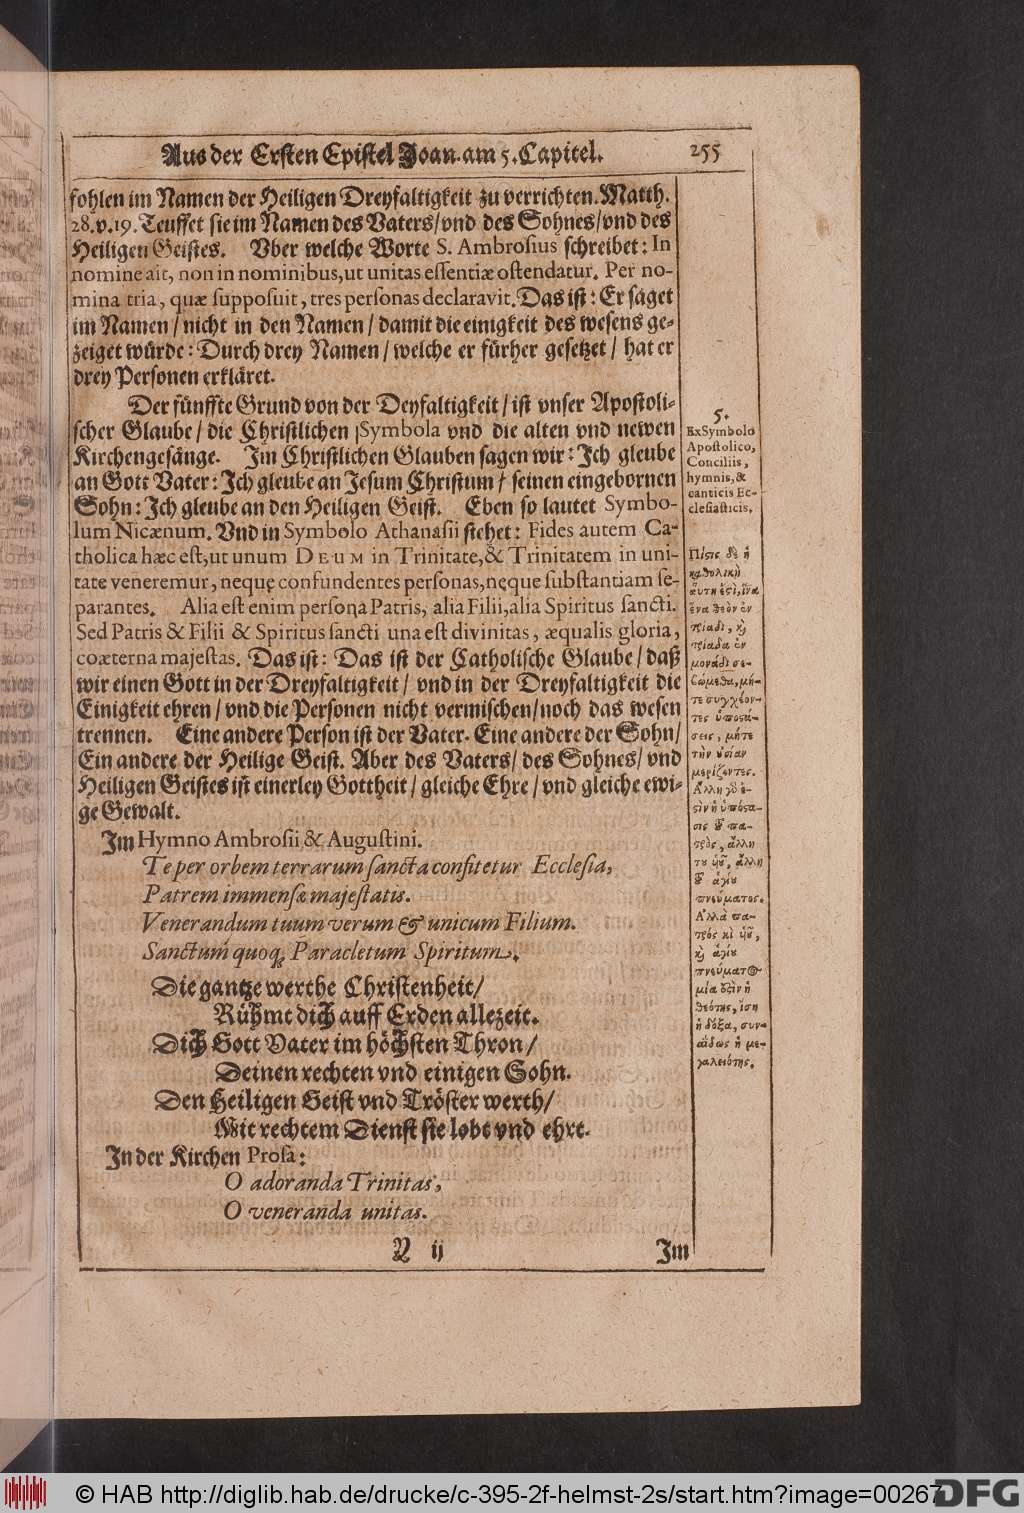 Aus der Ersten Epistel Joan. am 5. Capitel. 255
fohlen im Namen der Heiligen Dreyfaltigkeit zu verrichten. Matth.
28. v. 19. Teuffet sie im Namen des Vaters/ vnd des Sohnes/ vnd des
Heiligen Geistes. Vber welche Worte S. Ambrosius schreibet: In
nomine ait, non in nominibus, ut unitas essentiæ ostendatur. Per no-
mina tria, quæ supposuit, tres personas declaravit. Das ist: Er saget
im Namen / nicht in den Namen / damit die einigkeit des wesens ge-
zeiget würde: Durch drey Namen / welche er fürher gesetzet / hat er
drey Personen erkläret.
Der fünffte Grund von der Deyfaltigkeit / ist vnser Apostoli-
scher Glaube / die Christlichen Symbola vnd die alten vnd newen
Kirchengesänge. Im Christlichen Glauben sagen wir: Ich gleube
an Gott Vater: Ich gleube an Jesum Christum / seinen eingebornen
Sohn: Ich gleube an den Heiligen Geist. Eben so lautet Symbo-
lum Nicænum. Vnd in Symbolo Athanasii stehet: Fides autem Ca-
tholica hæc est, ut unum DEUM in Trinitate, & Trinitatem in uni-
tate veneremur, neque confundentes personas, neque substantiam se-
parantes. Alia est enim persona Patris, alia Filii, alia Spiritus sancti.
Sed Patris & Filii & Spiritus sancti una est divinitas, æqualis gloria,
coæterna majestas. Das ist: Das ist der Catholische Glaube / daß
wir einen Gott in der Dreyfaltigkeit / vnd in der Dreyfaltigkeit die
Einigkeit ehren / vnd die Personen nicht vermischen / noch das wesen
trennen. Eine andere Person ist der Vater. Eine andere der Sohn /
Ein andere der Heilige Geist. Aber des Vaters / des Sohnes / vnd
Heiligen Geistes ist einerley Gottheit / gleiche Ehre / vnd gleiche ewi-
ge Gewalt.
Im Hymno Ambrosii & Augustini.
Te per orbem terrarum sancta confitetur Ecclesia,
Patrem immensæ majestatis.
Venerandum tuum verum & unicum Filium.
Sanctum quoq; Paracletum Spiritum.
Die gantze werthe Christenheit /
Rühmt dich auff Erden allezeit.
Dich Gott Vater im höchsten Thron /
Deinen rechten vnd einigen Sohn.
Den Heiligen Geist vnd Tröster werth /
Mit rechtem Dienst sie lobt vnd ehrt.
In der Kirchen Prosa:
O adoranda Trinitas,
O veneranda unitas.
Y ij Im
5.
Ex Symbolo
Apostolico,
Conciliis,
hymnis, &
canticis Ec-
clesiasticis.
Πίςις δὲ ἡ
καθολικὴ
αὕτη ἐςὶ, ἵνα
ἕνα θεὸν ἐν
τριάδι, κỳ
τριάδα ἐν
μονάδι σε-
βώμεθα, μή-
τε συγχέον-
τες ὑποςά-
σεις, μήτε
τὴν ȣσίαν
μερίζοντες.
Ἄλλη γὸ ἐ-
ςὶν ἡ ὑπόςα-
σις τ͂ πα-
τρὸς, ἄλλη
τ͂ȣ ὑȣ͂, ἄλλη
τ͂ ἁγίȣ
πνεύματος.
Ἀλλὰ πα-
τρός κὶ ὑȣ͂,
κỳ ἁγίȣ
πνεύματ@
μία ἐςὶν ἡ
θεότης, ἴση
ἡ δόξα, συν-
αΐδιος ἡ με-
γαλειότης.
© HAB http://diglib.hab.de/drucke/c-395-2f-helmst-2s/start.htm?image=00267
DFG